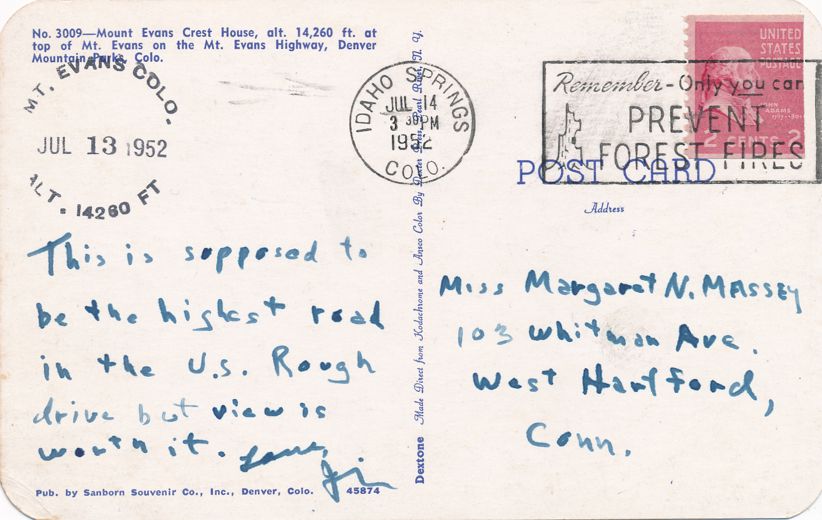 No. 3009—Mount Evans Crest House, alt. 14,260 ft. at
top of Mt. Evans on the Mt. Evans Highway, Denver
Mountain Parks, Colo.
MT. EVANS COLO.
JUL 13 1952
ALT. 14260 FT
This is supposed to
be the highest road
in the U.S. Rough
drive but view is
worth it. Love,
Jim
Pub. by Sanborn Souvenir Co., Inc., Denver, Colo. 45874
Dextone Made Direct from Kodachrome and Ansco Color By Dexter Press, Pearl River, N. Y.
IDAHO SPRINGS
JUL 14
3 30 PM
1952
COLO.
UNITED
STATES
POSTAGE
JOHN
ADAMS
2 CENTS 2
Remember-Only you can
PREVENT
FOREST FIRES
POST CARD
Address
Miss Margaret N. MASSEY
103 Whitman Ave.
West Hartford,
Conn.